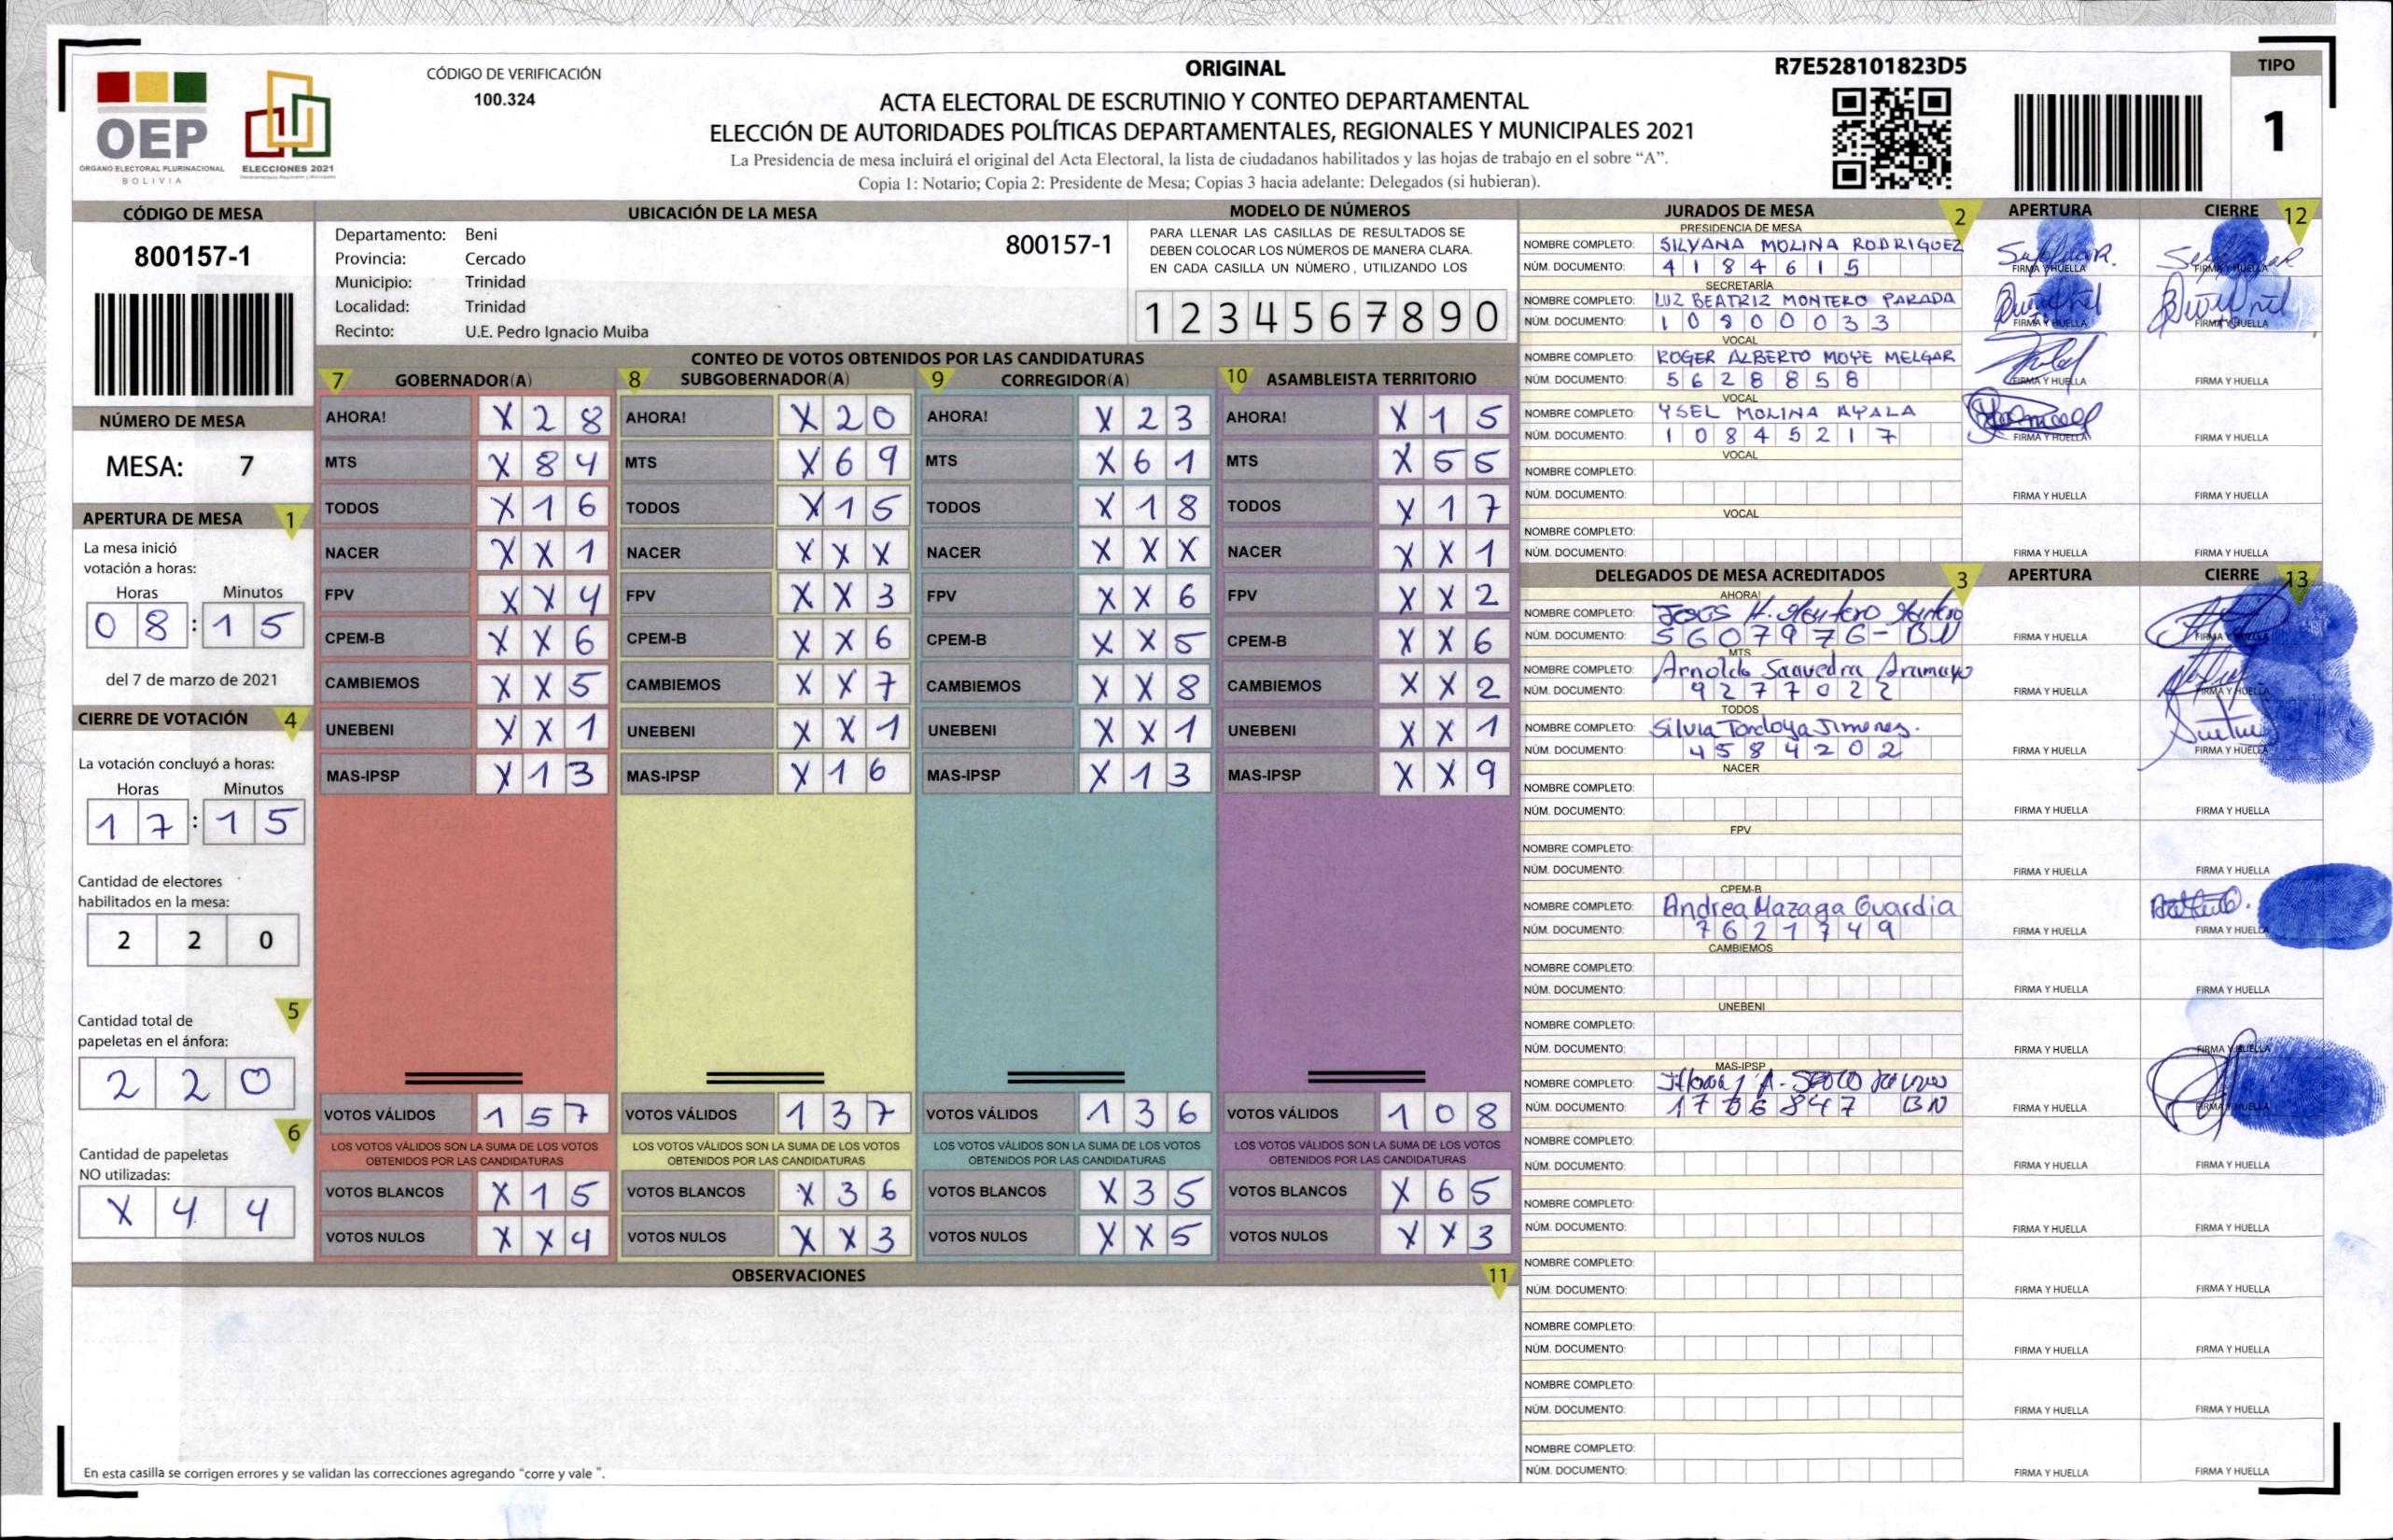 CÓDIGO DE VERIFICACIÓN
100.324
ORIGINAL
R7E528101823D5
TIPO
1
OEP
ÓRGANO ELECTORAL PLURINACIONAL
BOLIVIA
ELECCIONES 2021
ACTA ELECTORAL DE ESCRUTINIO Y CONTEO DEPARTAMENTAL
ELECCIÓN DE AUTORIDADES POLÍTICAS DEPARTAMENTALES, REGIONALES Y MUNICIPALES 2021
La Presidencia de mesa incluirá el original del Acta Electoral, la lista de ciudadanos habilitados y las hojas de trabajo en el sobre “A”.
Copia 1: Notario; Copia 2: Presidente de Mesa; Copias 3 hacia adelante: Delegados (si hubieran).
CÓDIGO DE MESA
800157-1
NÚMERO DE MESA
MESA: 7
APERTURA DE MESA 1
La mesa inició
votación a horas:
Horas Minutos
08:15
del 7 de marzo de 2021
CIERRE DE VOTACIÓN 4
La votación concluyó a horas:
Horas Minutos
17:15
Cantidad de electores
habilitados en la mesa:
220
5
Cantidad total de
papeletas en el ánfora:
220
6
Cantidad de papeletas
NO utilizadas:
X44
UBICACIÓN DE LA MESA
Departamento: Beni
Provincia: Cercado
Municipio: Trinidad
Localidad: Trinidad
Recinto: U.E. Pedro Ignacio Muiba
800157-1
MODELO DE NÚMEROS
PARA LLENAR LAS CASILLAS DE RESULTADOS SE
DEBEN COLOCAR LOS NÚMEROS DE MANERA CLARA.
EN CADA CASILLA UN NÚMERO, UTILIZANDO LOS
1234567890
CONTEO DE VOTOS OBTENIDOS POR LAS CANDIDATURAS
7 GOBERNADOR(A) 8 SUBGOBERNADOR(A) 9 CORREGIDOR(A) 10 ASAMBLEISTA TERRITORIO
AHORA! X28 AHORA! X20 AHORA! X23 AHORA! X15
MTS X84 MTS X69 MTS X61 MTS X55
TODOS X16 TODOS X15 TODOS X18 TODOS X17
NACER XX1 NACER XXX NACER XXX NACER XX1
FPV XX4 FPV XX3 FPV XX6 FPV XX2
CPEM-B XX6 CPEM-B XX6 CPEM-B XX5 CPEM-B XX6
CAMBIEMOS XX5 CAMBIEMOS XX7 CAMBIEMOS XX8 CAMBIEMOS XX2
UNEBENI XX1 UNEBENI XX1 UNEBENI XX1 UNEBENI XX1
MAS-IPSP X13 MAS-IPSP X16 MAS-IPSP X13 MAS-IPSP XX9
VOTOS VÁLIDOS 157 VOTOS VÁLIDOS 137 VOTOS VÁLIDOS 136 VOTOS VÁLIDOS 108
LOS VOTOS VÁLIDOS SON LA SUMA DE LOS VOTOS LOS VOTOS VÁLIDOS SON LA SUMA DE LOS VOTOS LOS VOTOS VÁLIDOS SON LA SUMA DE LOS VOTOS LOS VOTOS VÁLIDOS SON LA SUMA DE LOS VOTOS
OBTENIDOS POR LAS CANDIDATURAS OBTENIDOS POR LAS CANDIDATURAS OBTENIDOS POR LAS CANDIDATURAS OBTENIDOS POR LAS CANDIDATURAS
VOTOS BLANCOS X15 VOTOS BLANCOS X36 VOTOS BLANCOS X35 VOTOS BLANCOS X65
VOTOS NULOS XX4 VOTOS NULOS XX3 VOTOS NULOS XX5 VOTOS NULOS XX3
OBSERVACIONES 11
En esta casilla se corrigen errores y se validan las correcciones agregando “corre y vale ”.
JURADOS DE MESA 2 APERTURA CIERRE 12
PRESIDENCIA DE MESA
NOMBRE COMPLETO: SILVANA MOLINA RODRIGUEZ
NÚM. DOCUMENTO: 4184615 FIRMA Y HUELLA FIRMA Y HUELLA
SECRETARÍA
NOMBRE COMPLETO: LUZ BEATRIZ MONTERO PARADA
NÚM. DOCUMENTO: 10800033 FIRMA Y HUELLA FIRMA Y HUELLA
VOCAL
NOMBRE COMPLETO: ROGER ALBERTO MOYE MELGAR
NÚM. DOCUMENTO: 5628858 FIRMA Y HUELLA FIRMA Y HUELLA
VOCAL
NOMBRE COMPLETO: YSEL MOLINA AYALA
NÚM. DOCUMENTO: 10845217 FIRMA Y HUELLA FIRMA Y HUELLA
VOCAL
NOMBRE COMPLETO:
NÚM. DOCUMENTO: FIRMA Y HUELLA FIRMA Y HUELLA
VOCAL
NOMBRE COMPLETO:
NÚM. DOCUMENTO: FIRMA Y HUELLA FIRMA Y HUELLA
DELEGADOS DE MESA ACREDITADOS 3 APERTURA CIERRE 13
AHORA!
NOMBRE COMPLETO: H. Montero
NÚM. DOCUMENTO: 5607976-BN FIRMA Y HUELLA FIRMA Y HUELLA
MTS
NOMBRE COMPLETO: Arnoldo Saavedra Aramayo
NÚM. DOCUMENTO: 9277022 FIRMA Y HUELLA FIRMA Y HUELLA
TODOS
NOMBRE COMPLETO: Silvia Tordoya Jimenez.
NÚM. DOCUMENTO: 4584202 FIRMA Y HUELLA FIRMA Y HUELLA
NACER
NOMBRE COMPLETO:
NÚM. DOCUMENTO: FIRMA Y HUELLA FIRMA Y HUELLA
FPV
NOMBRE COMPLETO:
NÚM. DOCUMENTO: FIRMA Y HUELLA FIRMA Y HUELLA
CPEM-B
NOMBRE COMPLETO: Andrea Mazaga Guardia
NÚM. DOCUMENTO: 7621749 FIRMA Y HUELLA FIRMA Y HUELLA
CAMBIEMOS
NOMBRE COMPLETO:
NÚM. DOCUMENTO: FIRMA Y HUELLA FIRMA Y HUELLA
UNEBENI
NOMBRE COMPLETO:
NÚM. DOCUMENTO: FIRMA Y HUELLA FIRMA Y HUELLA
MAS-IPSP
NOMBRE COMPLETO: A.
NÚM. DOCUMENTO: 1706847 BN FIRMA Y HUELLA FIRMA Y HUELLA
NOMBRE COMPLETO:
NÚM. DOCUMENTO: FIRMA Y HUELLA FIRMA Y HUELLA
NOMBRE COMPLETO:
NÚM. DOCUMENTO: FIRMA Y HUELLA FIRMA Y HUELLA
NOMBRE COMPLETO:
NÚM. DOCUMENTO: FIRMA Y HUELLA FIRMA Y HUELLA
NOMBRE COMPLETO:
NÚM. DOCUMENTO: FIRMA Y HUELLA FIRMA Y HUELLA
NOMBRE COMPLETO:
NÚM. DOCUMENTO: FIRMA Y HUELLA FIRMA Y HUELLA
NOMBRE COMPLETO:
NÚM. DOCUMENTO: FIRMA Y HUELLA FIRMA Y HUELLA